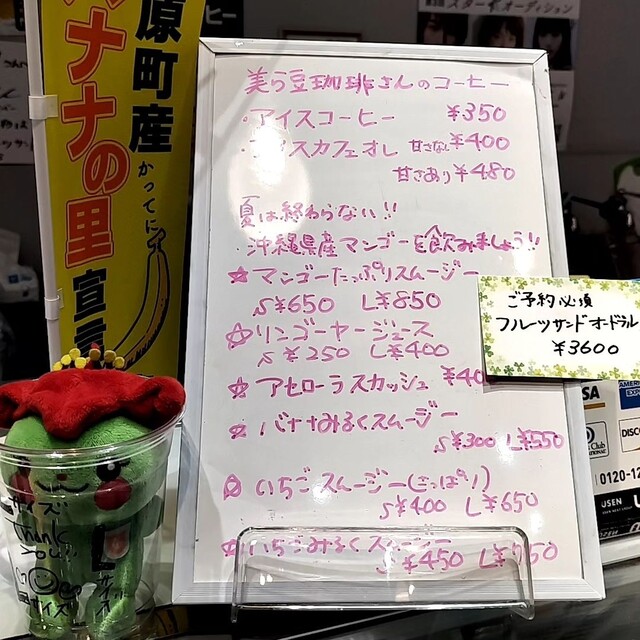 美ら豆珈琲さんのコーヒー
・アイスコーヒー ¥350
・アイスカフェオレ 甘さなし ¥400
甘さあり ¥480
夏は終わらない!!
・沖縄県産マンゴーを飲みましょう!!
☆マンゴーたっぷりスムージー
S¥650 L¥850
☆リンゴーヤージュース
S¥250 L¥400
☆アセローラスカッシュ ¥40
☆バナナみるくスムージー
S¥300 L¥550
☆いちごスムージー(さっぱり)
S¥400 L¥650
☆いちごみるくスムージー
S¥450 L¥750
ご予約必須
フルーツサンドオードブル
¥3600
原町産
かってに
ナナの里
宣言
スターオーディション
VISA
AMERICAN EXPRESS
DISC
0120-1
USEN
サイズ
Thank
you!!
L
サイズ